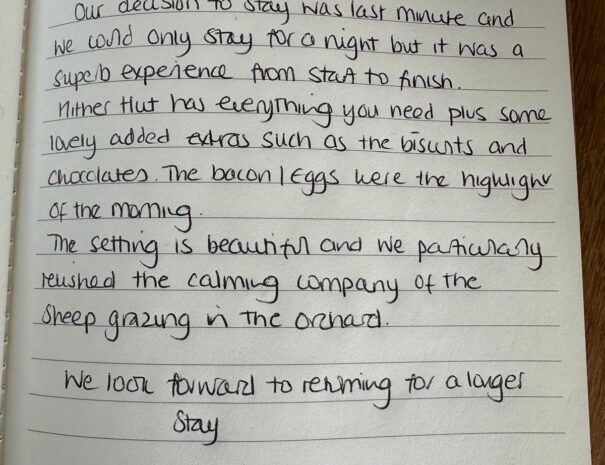 Our decision to stay was last minute and
we could only stay for a night but it was a
superb experience from start to finish.
Hither Hut has everything you need plus some
lovely added extras such as the biscuits and
chocolates. The bacon/eggs were the highlight
of the morning.
The setting is beautiful and we particularly
relished the calming company of the
sheep grazing in the orchard.
We look forward to returning for a longer
stay